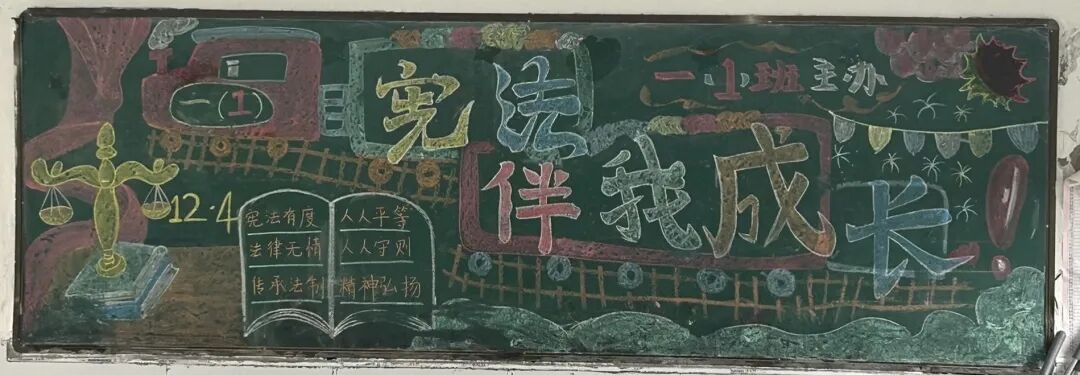 一(1)
宪法
伴我成长!
一(1)班主办
12·4
宪法有度
法律无情
传承法制
人人平等
人人守则
精神弘扬